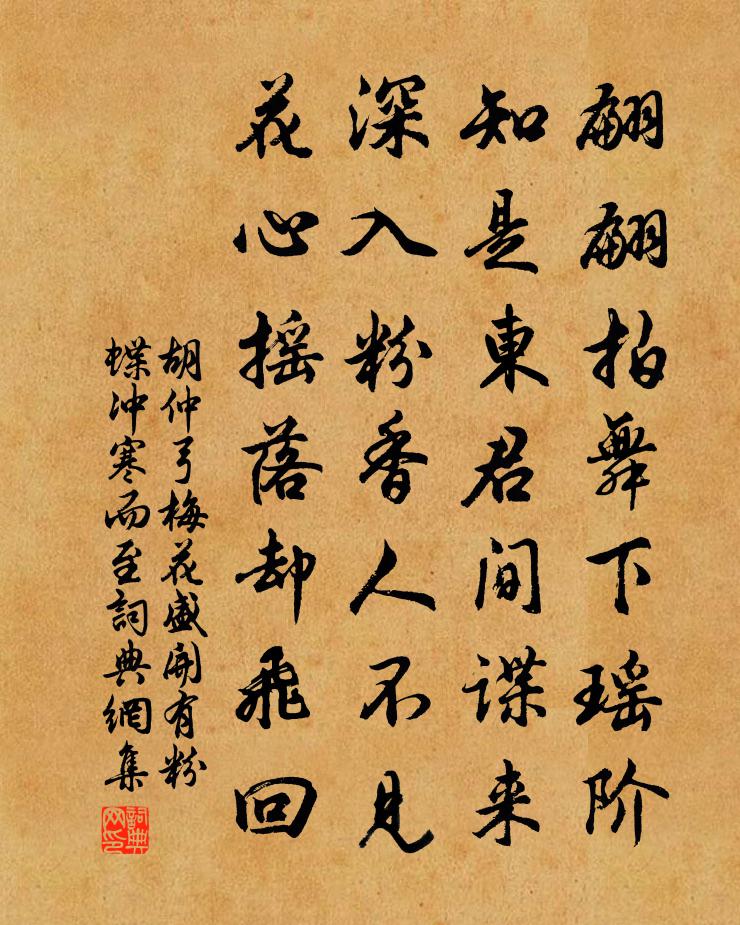 翩翩拍舞下瑶阶
知是東君间谍来
深入粉香人不见
花心摇落却飛回
胡仲弓梅花盛開有粉
蝶冲寒而至詞典網集
詞典网印